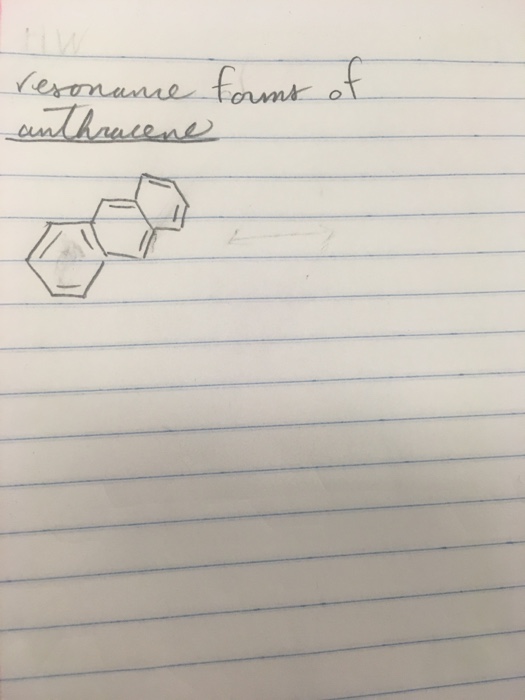 resonance forms of
anthracene